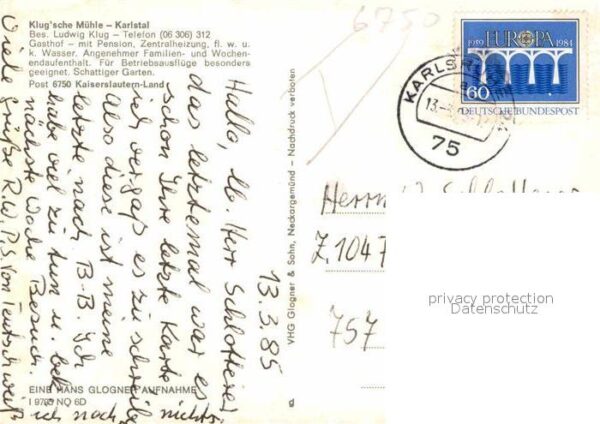 Klug'sche Mühle – Karlstal
Bes. Ludwig Klug – Telefon (06 306) 312
Gasthof – mit Pension, Zentralheizung, fl. w. u.
k. Wasser. Angenehmer Familien- und Wochen-
endaufenthalt. Für Betriebsausflüge besonders
geeignet. Schattiger Garten.
Post 6750 Kaiserslautern-Land
6750
13.3.85
Hallo, lb. Herr Schlotterer
das letztemal war es
schon Ihre letzte Karte
ich vergaß es zu schreiben
also diese ist meine
letzte nach B.-B. Ich
habe viel zu tun u. bek.
nächste Woche Besuch.
Viele Grüße R.W. P.S. Von Teutsch weiß
ich noch nichts
EINE HANS GLOGNER AUFNAHME
I 9780 NQ 6D
VHG Glogner & Sohn, Neckargemünd – Nachdruck verboten
g
EUROPA
1959 1984
60
DEUTSCHE BUNDESPOST
KARLS
13.-3.
75
Herrn W. Schlotterer
Z. 1047
757
privacy protection
Datenschutz